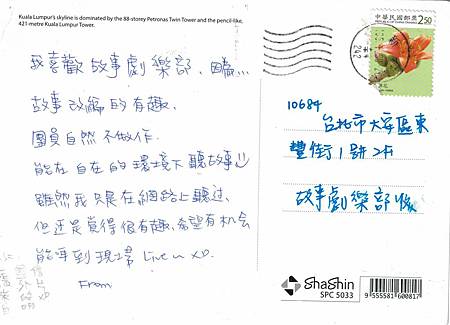 Kuala Lumpur's skyline is dominated by the 88-storey Petronas Twin Tower and the pencil-like,
421-metre Kuala Lumpur Tower.
我喜歡故事劇樂部、因為...
故事改編的有趣、
團員自然不做作.
能在自在的環境下聽故事
雖然我只是在網路上聽过、
但还是覺得很有趣、希望有机会
能呼到現場 Live u XD.
From
中華民國郵票
2.50
242
10684
台北市大安區東
豐街1號2F
故事劇樂部 收
ShaShin
SPC 5033
9 555581 600817